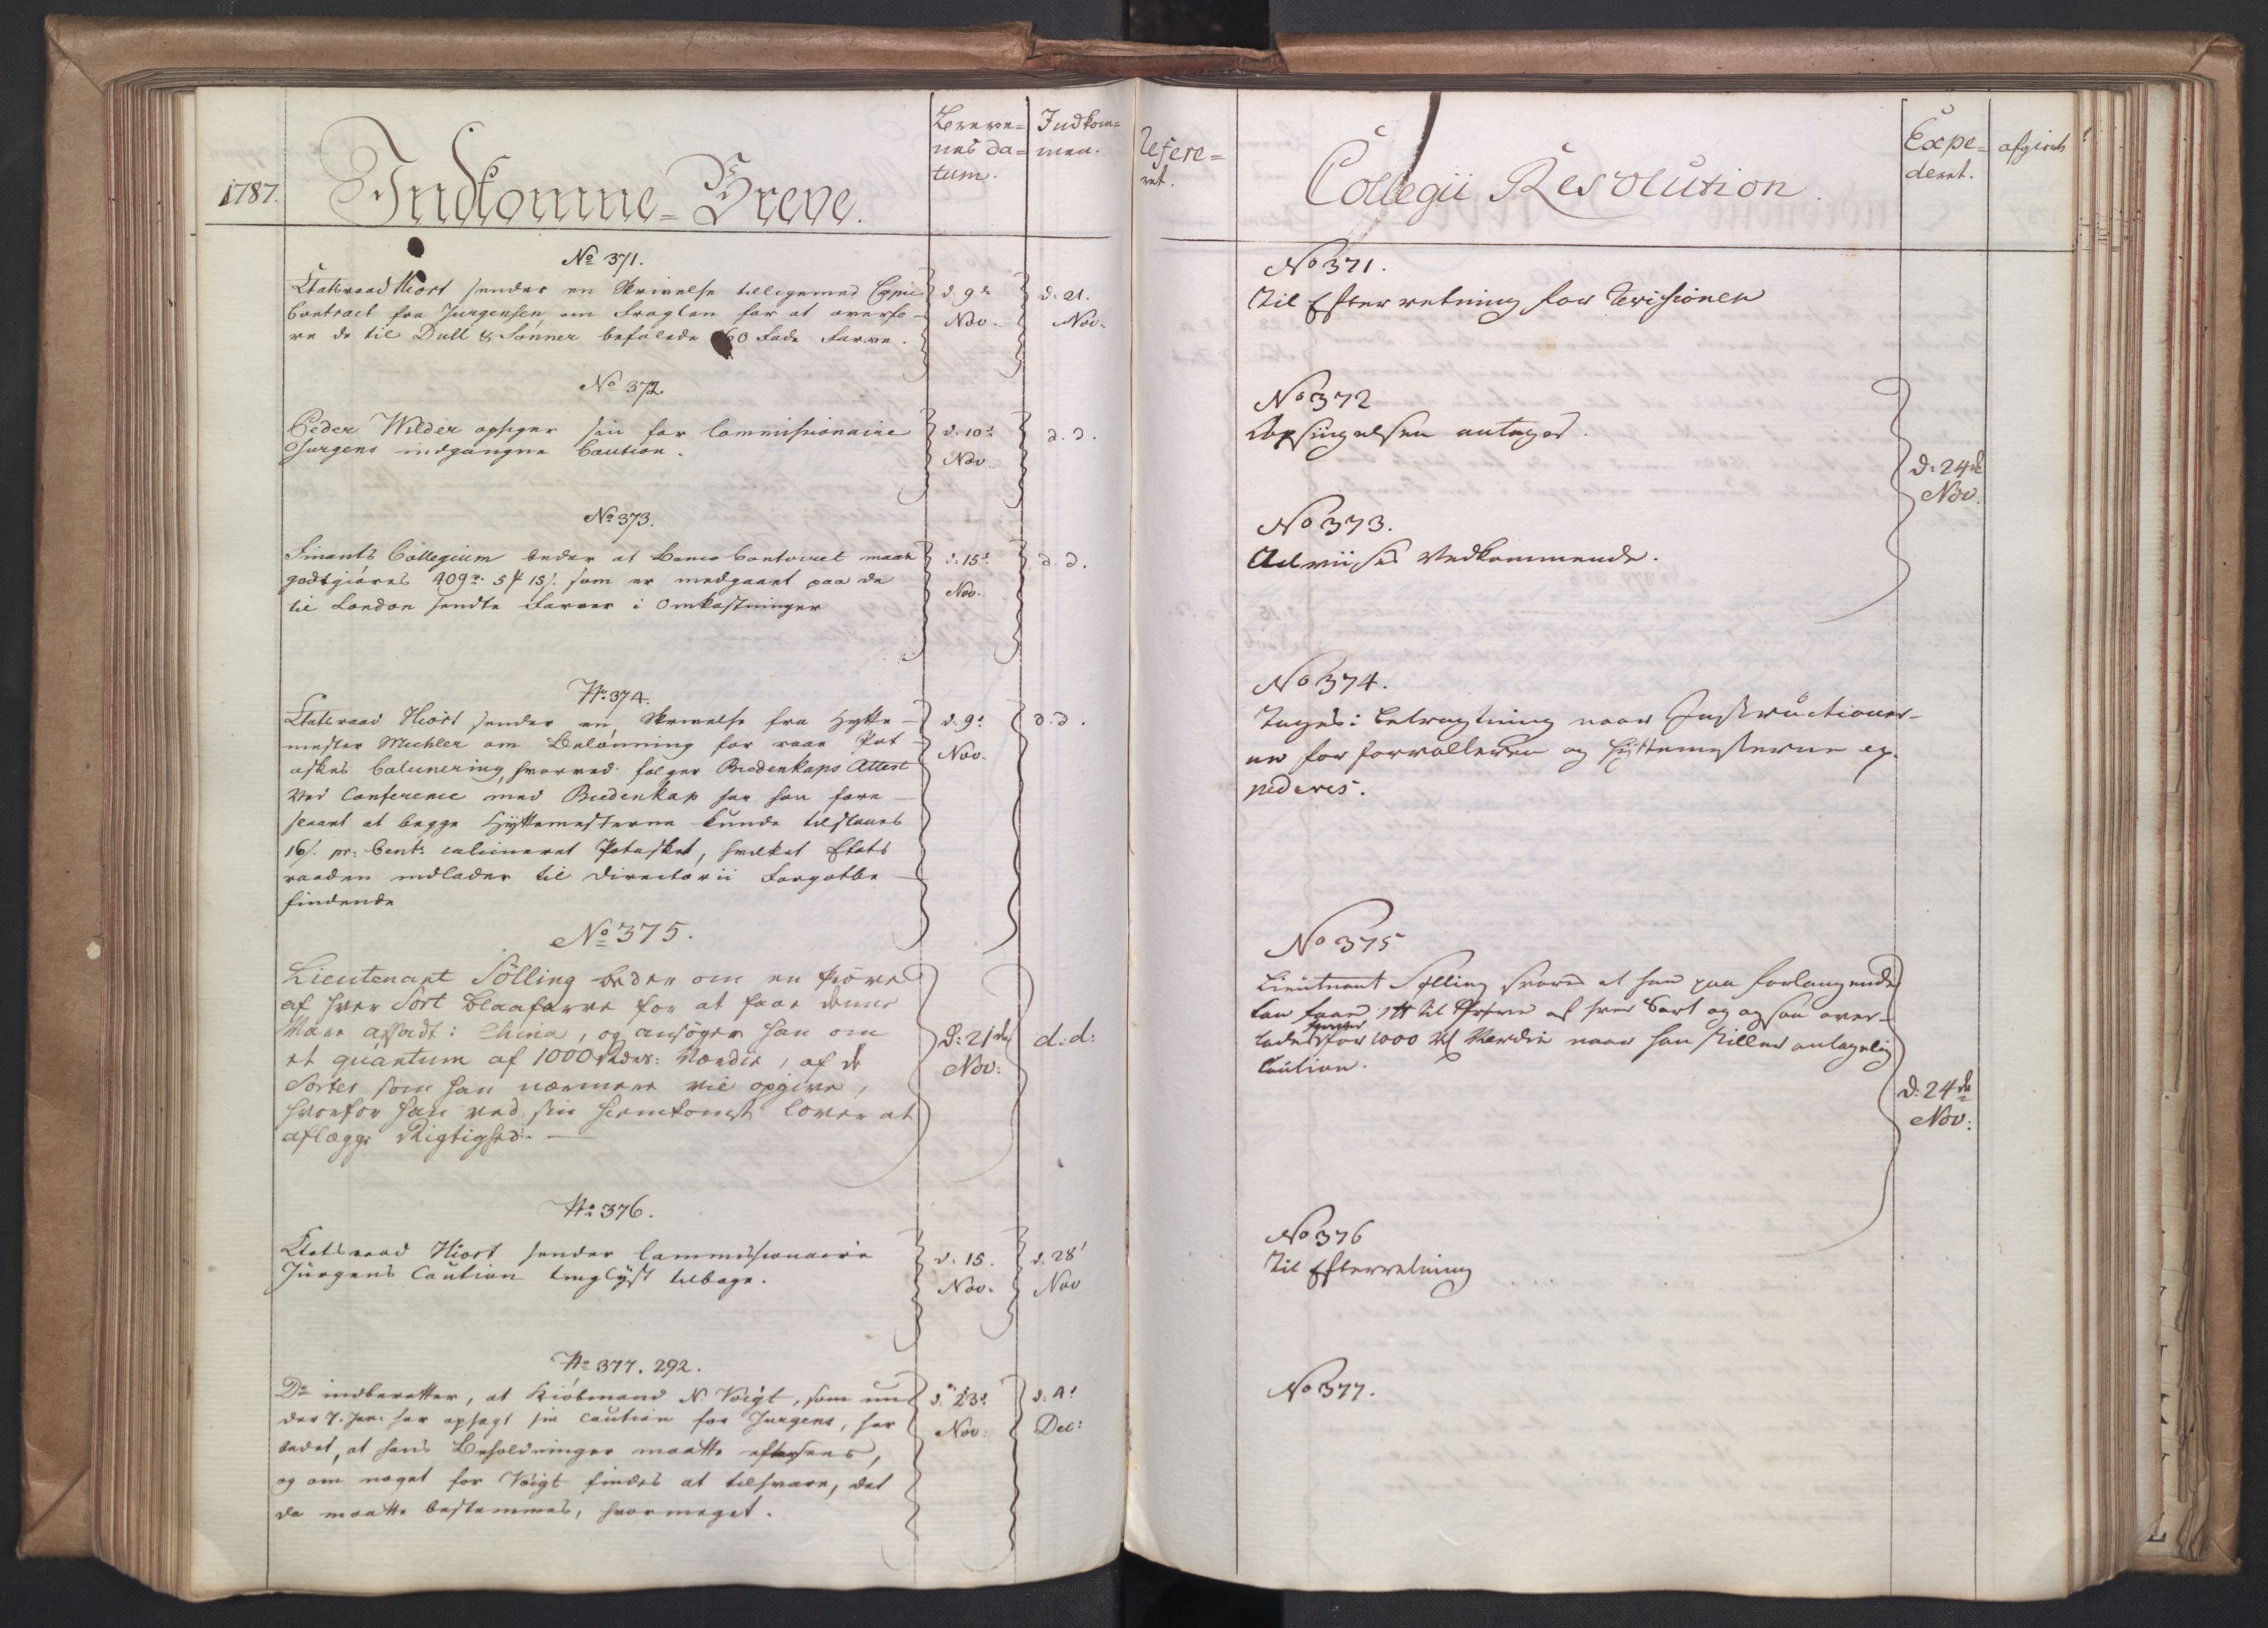 1787.
Indkomne-Breve.
Breve=
nes Da=
tum.
Indkom=
men.
No 371.
Etatsraad Hiort sender en Skrivelse tilligemed Copie
Contract fra Jurgensen om Fragten for at overfø-
re de til Dull & Sønner befalede 60 Fade Farve.
d. 9de
Nov.
d. 21.
Nov.
No 372
Peder Wilder opsiger sin for Commissionaire
Jurgens indgangne Caution.
d. 10de
Nov.
d. d.
No 373.
Finants Collegium beder at Banco Contoiret maae
godtgiøres 409 rd 5 # 15 s. som er medgaaet paa de
til London sendte Farver i Omkostninger
d. 15de
Nov.
d. d.
No 374.
Etatsraad Hiort sender en Skrivelse fra Hytte-
mester Michler om Belønning for raae Pot-
askes Calcinering, hvorved følger Bredenkaps Attest
Ved Conference med Biedenkap har han fore-
seaaet at begge Hyttemesterne kunde tilstaaes
16 s. pr. Cent. calcineret Potaske, hvilket Etats
raaden indlader til Directorii Forgotbe-
findende
d. 9de
Nov.
d. d.
No 375.
Lieutenant Sölling beder om en Prøve
af hver Sort Blaafarve for at faae denne
Vare afsadt i China, og ansøger han om
et quantum af 1000 Rdlrs: Værdie, af de
Sorter som han nærmere vil opgive,
hvorfor han ved sin Hiemkomst lover at
aflægge Rigtighed. —
d: 21de
Nov:
d: d:
No 376.
Etatsraad Hiort sender Commissionaire
Jürgens Caution tinglyst tilbage.
d. 15.
Nov.
d. 28
Nov
No 377. 292.
Do indberetter, at Kiøbmand N Voigt, som un-
der 7. Jan. har opsagt sin Caution for Jurgens, har
bedet, at hans Beholdninger maatte eftersees,
og om noget for Voigt findes at tilsvare, det
da maatte bestemmes, hvormeget.
d. 23de
Nov:
d. 4
Dec:
Refere=
ret.
Collegii Resolution.
Expe=
deret.
afgiort
No 371.
Til Efterretning for Revisionen
No 372
Opsigelsen antages.
No 373.
Adviises Vedkommende.
d. 24de
Nov.
No 374.
Tages i Betragtning naar Instructioner-
ne for Forvalteren og Hyttemesterne ex-
pederes.
No 375
Lieutnant Sølling svares at han paa Forlangende
kan faae 1 # til Prøve af hver Sort og ogsaa over-
lades Farver for 1000 Rd Værdie naar han stiller antagelig
Caution.
d. 24de
Nov:
No 376
Til Efterretning
No 377.